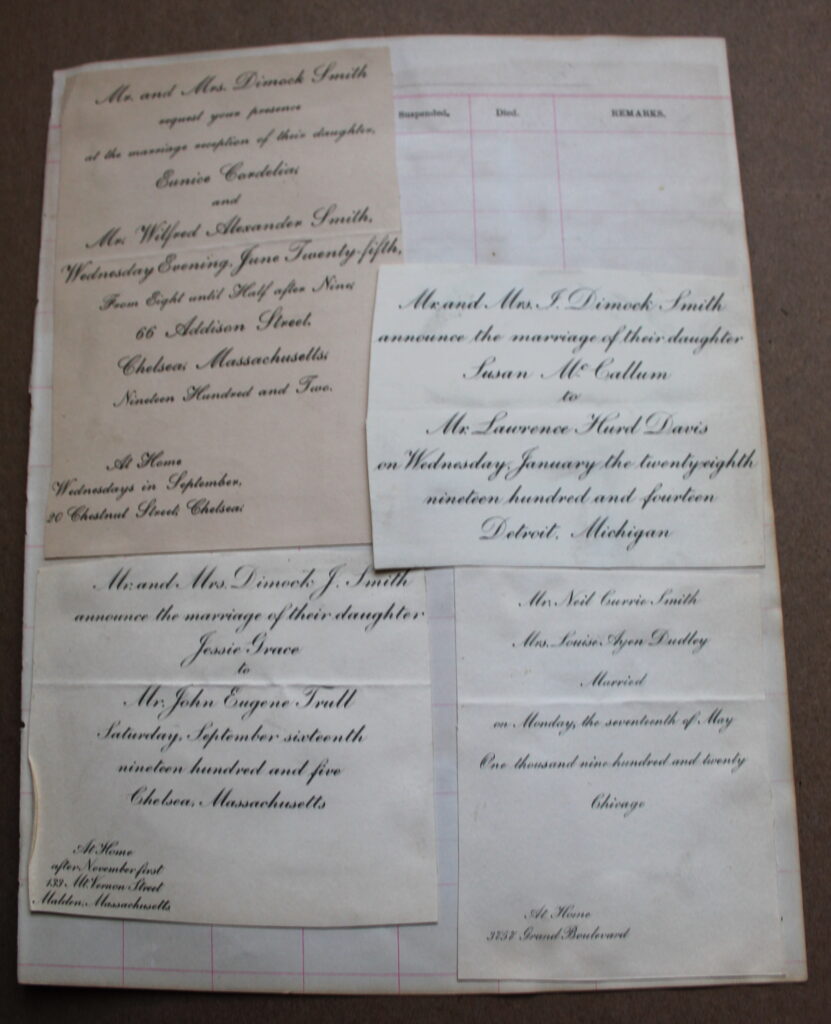 Mr. and Mrs. Dimock Smith
request your presence
at the marriage reception of their daughter,
Eunice Cordelia,
and
Mr. Wilfred Alexander Smith,
Wednesday Evening, June Twenty-fifth,
From Eight until Half after Nine,
66 Addison Street,
Chelsea, Massachusetts,
Nineteen Hundred and Two.
At Home
Wednesdays in September,
20 Chestnut Street, Chelsea,
Suspended. Died. REMARKS.
Mr. and Mrs. I. Dimock Smith
announce the marriage of their daughter
Susan McCallum
to
Mr. Lawrence Hurd Davis
on Wednesday, January the twenty eighth
nineteen hundred and fourteen
Detroit, Michigan
Mr. and Mrs. Dimock J. Smith
announce the marriage of their daughter
Jessie Grace
to
Mr. John Eugene Trull
Saturday, September sixteenth
nineteen hundred and five
Chelsea, Massachusetts
At Home
after November first
133 Mt. Vernon Street
Malden, Massachusetts
Mr. Neil Currie Smith
Mrs. Louise Dudley
Married
on Monday, the seventeenth of May
One thousand nine hundred and twenty
Chicago
At Home
Grand Boulevard